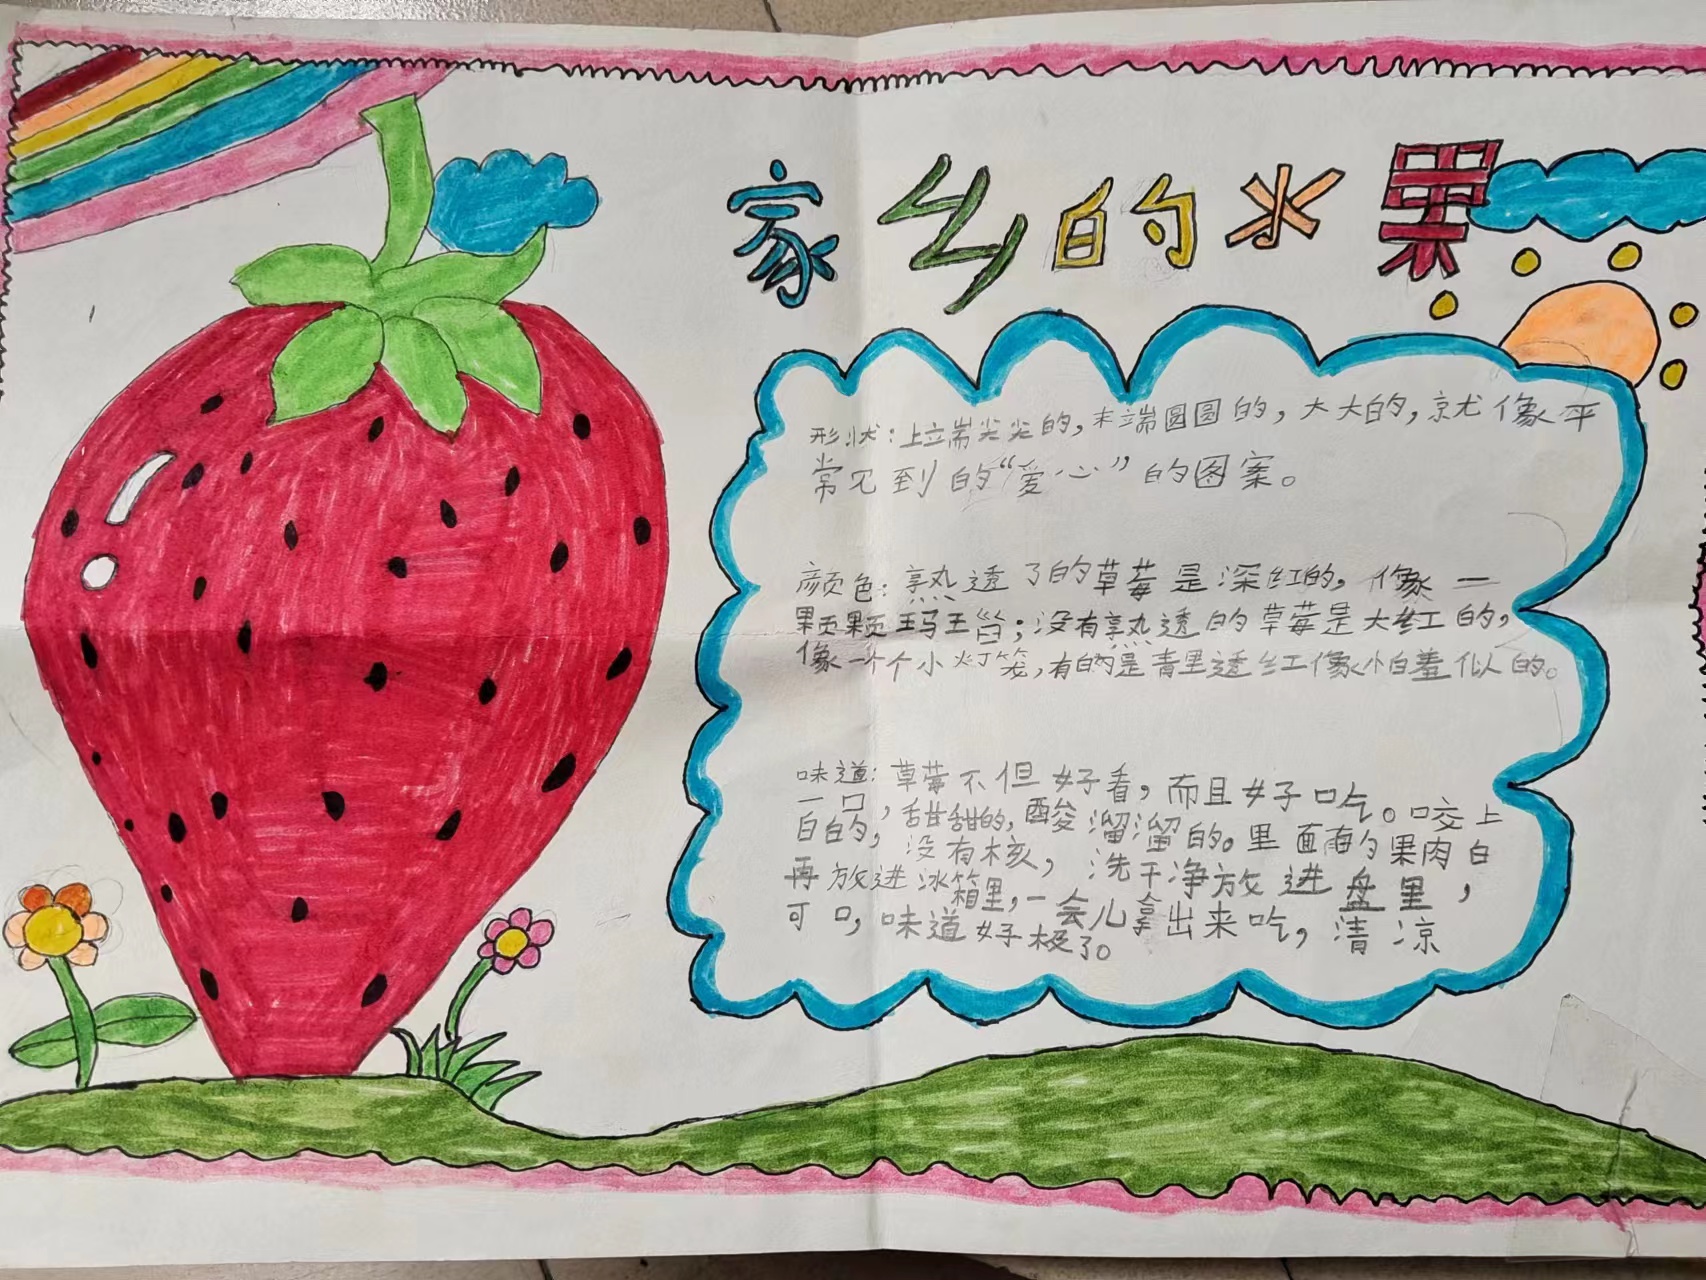 家乡的水果
形状:上端尖尖的,末端圆圆的,大大的,就像平
常见到的“爱心”的图案。
颜色:熟透了的草莓是深红的,像一
颗颗玛王皆;没有熟透的草莓是大红的,
像一个个小灯笼,有的是青里透红像怕羞似的。
味道:草莓不但好看,而且好吃。咬上
一口,甜甜的,酸溜溜的。里面的果肉白
白的,没有核,洗干净放进盘里,
再放进冰箱里,一会儿拿出来吃,清凉
可口,味道好极了。